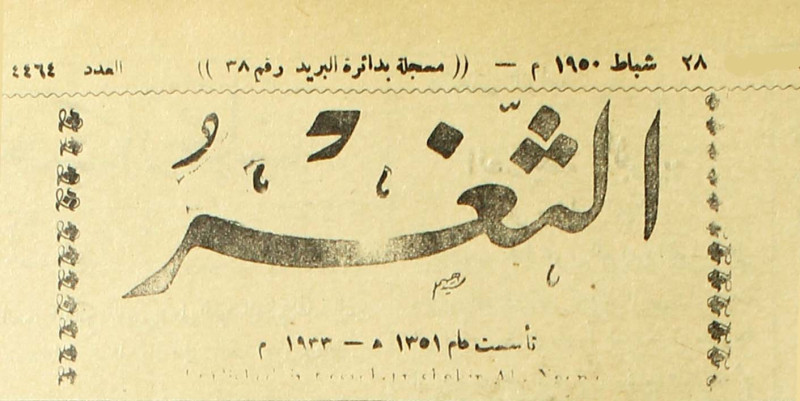 ٢٨ شباط ١٩٥٠ م — (( مسجلة بدائرة البريد رقم ٣٨ )) العدد ٤٤٦٤
الثَّغْرُ
تأسست عام ١٣٥١ ه — ١٩٣٣ م